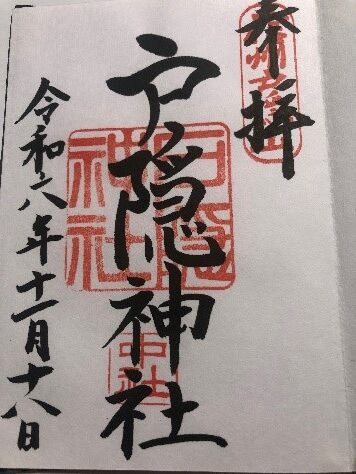 奉拝
戸隠神社
令和六年十一月十八日
戸隠
神社
中社